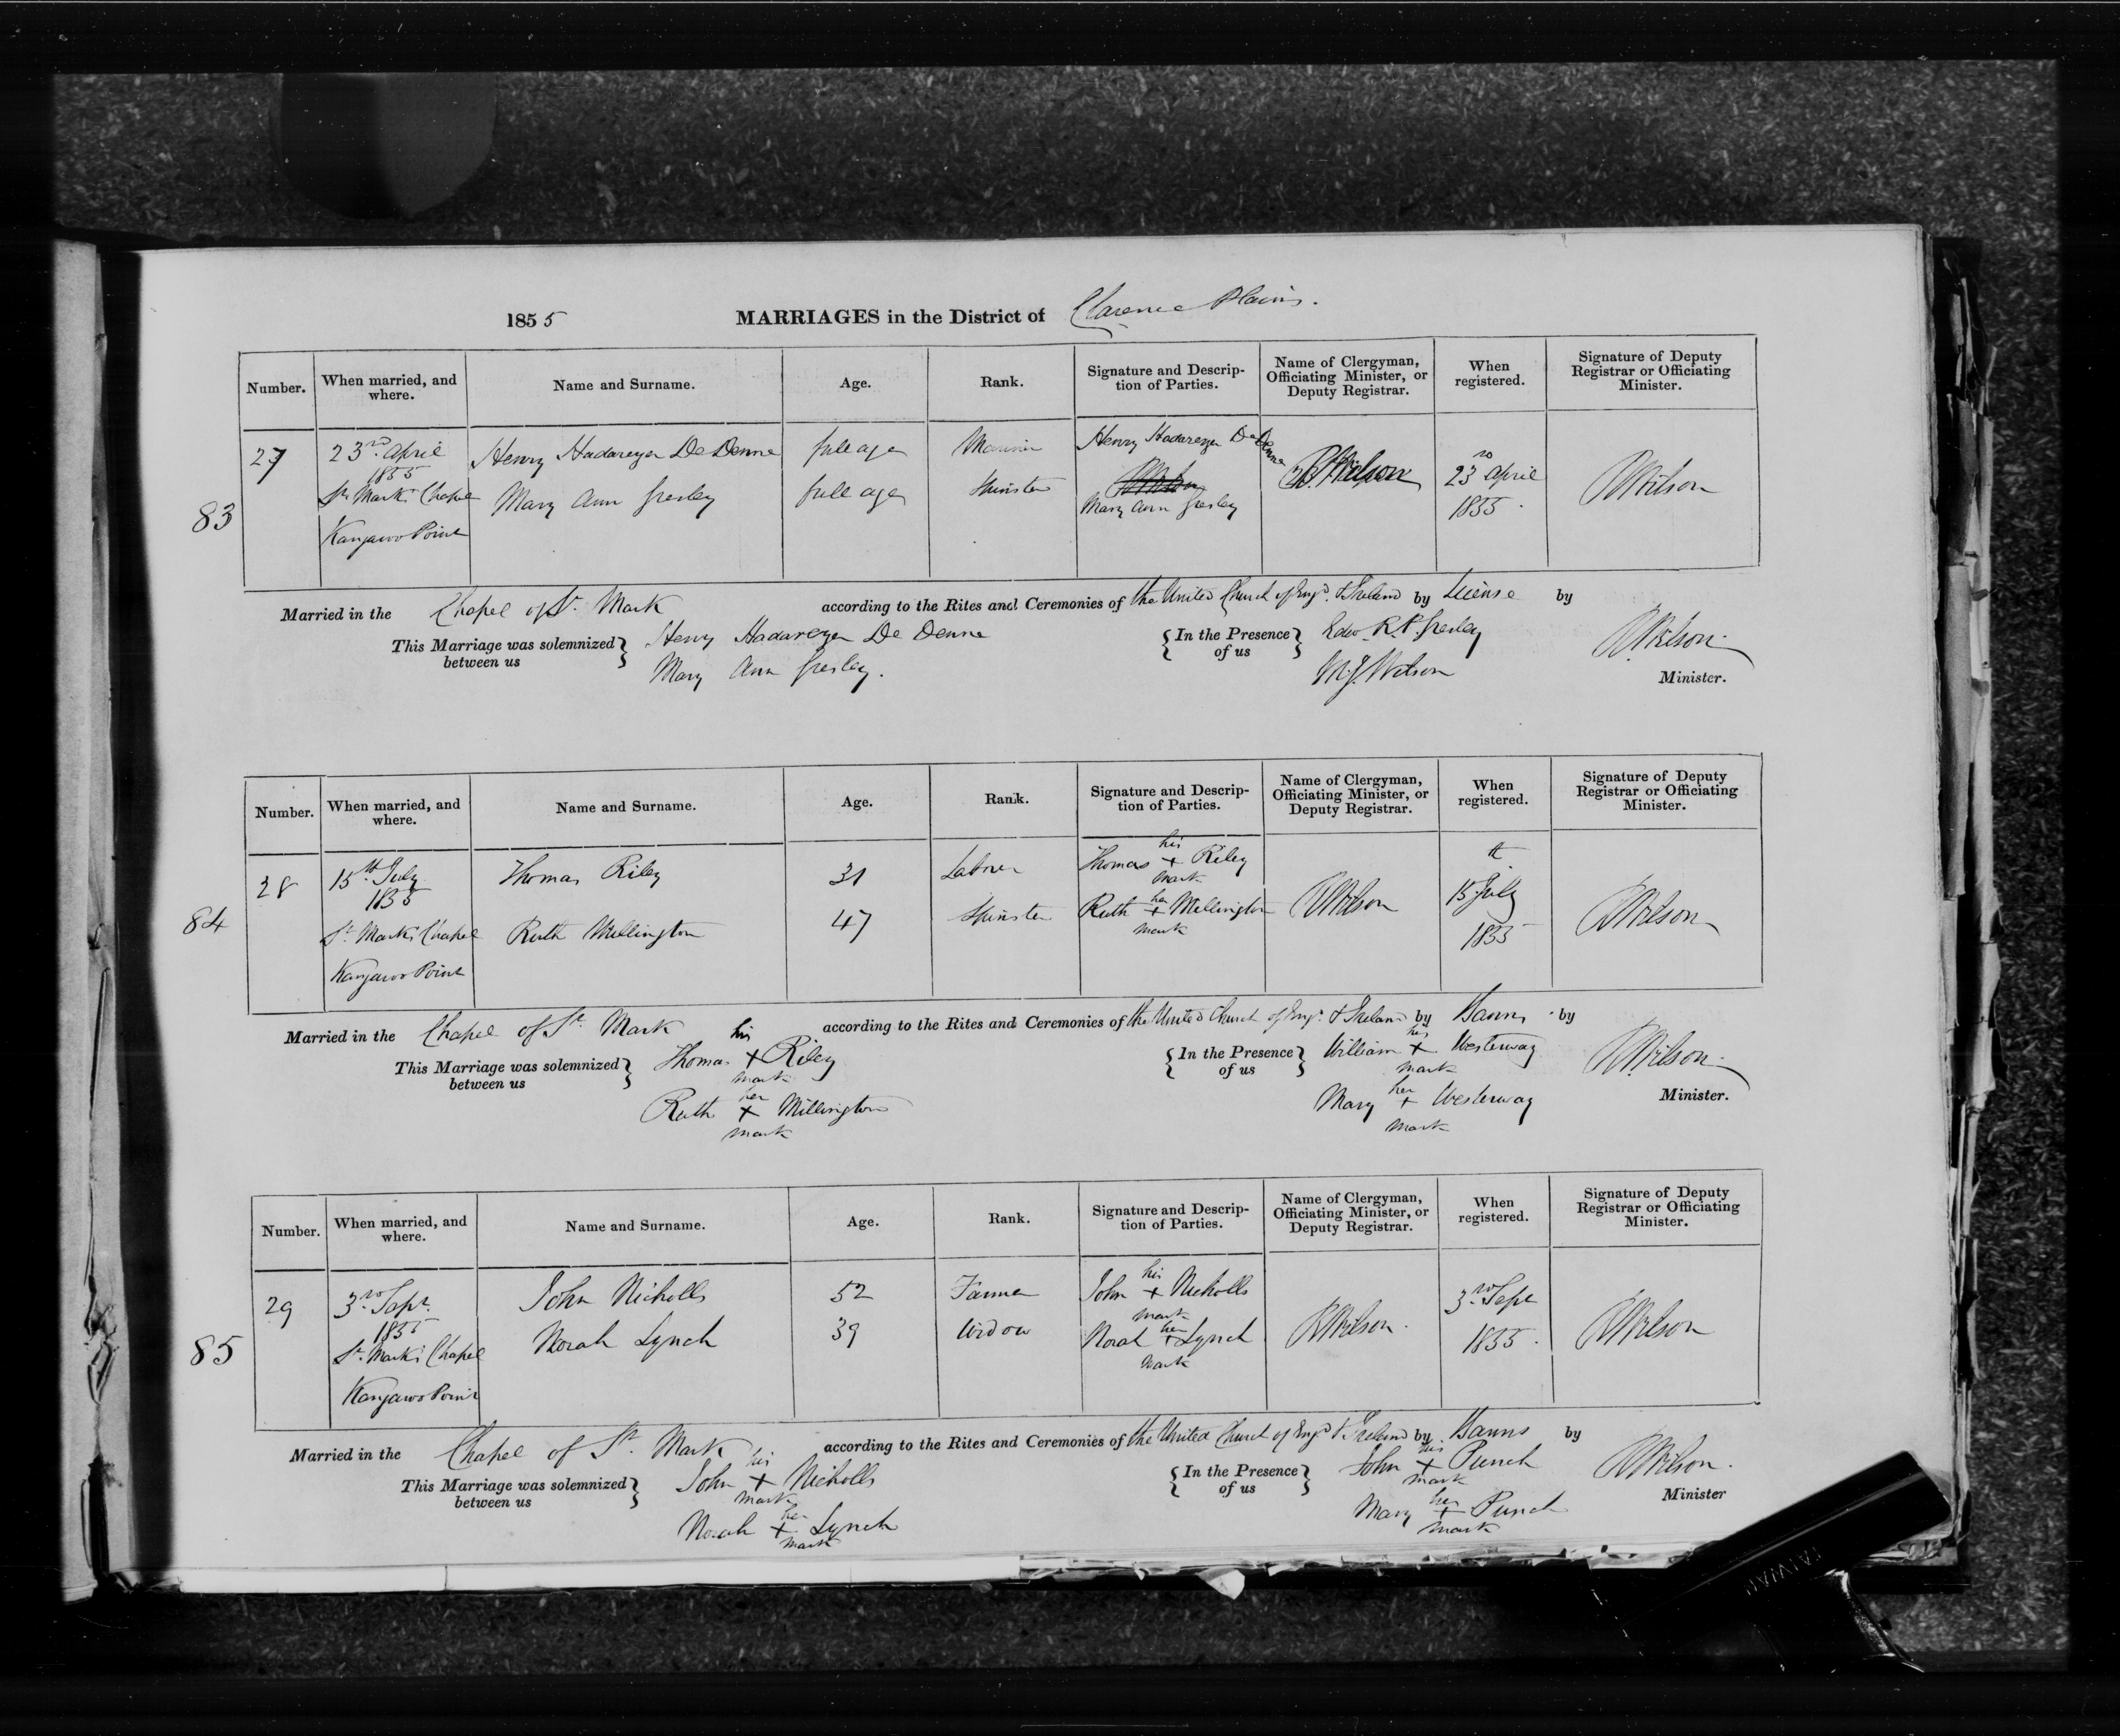 1855 MARRIAGES in the District of Clarence Plains.
Number. When married, and where. Name and Surname. Age. Rank. Signature and Description of Parties. Name of Clergyman, Officiating Minister, or Deputy Registrar. When registered. Signature of Deputy Registrar or Officiating Minister.
83
27 23rd April 1855 St Mark's Chapel Kangaroo Point
Henry Hadarezer De Denne full age Mariner Henry Hadarezer De Denne
Mary Ann Gresley full age Spinster Mary Ann Gresley
R Wilson 23rd April 1855 R Wilson
Married in the Chapel of St. Mark according to the Rites and Ceremonies of the United Church of Engd. & Ireland by License by
This Marriage was solemnized between us { Henry Hadarezer De Denne
Mary Ann Gresley.
{ In the Presence of us } Edw. R. P. Gresley
M. J. Wilson
R Wilson
Minister.
Number. When married, and where. Name and Surname. Age. Rank. Signature and Description of Parties. Name of Clergyman, Officiating Minister, or Deputy Registrar. When registered. Signature of Deputy Registrar or Officiating Minister.
84
28 15th July 1855 St. Mark's Chapel Kangaroo Point
Thomas Riley 31 Laborer Thomas his + mark Riley
Ruth Millington 47 Spinster Ruth her + mark Millington
R Wilson 15th July 1855 R Wilson
Married in the Chapel of St. Mark according to the Rites and Ceremonies of the United Church of Engd. & Ireland by Banns by
This Marriage was solemnized between us } Thomas his + mark Riley
Ruth her + mark Millington
{ In the Presence of us } William his + mark Westerway
Mary her + mark Westerway
R Wilson.
Minister.
Number. When married, and where. Name and Surname. Age. Rank. Signature and Description of Parties. Name of Clergyman, Officiating Minister, or Deputy Registrar. When registered. Signature of Deputy Registrar or Officiating Minister.
85
29 3rd Sept. 1855 St. Mark's Chapel Kangaroo Point
John Nicholls 52 Farmer John his + mark Nicholls
Norah Lynch 39 Widow Norah her + mark Lynch
R Wilson. 3rd Sept 1855. R Wilson
Married in the Chapel of St. Mark according to the Rites and Ceremonies of the United Church of Engd & Ireland by Banns by
This Marriage was solemnized between us } John his + mark Nicholls
Norah her + mark Lynch
{ In the Presence of us } John his + mark Punch
Mary her + mark Punch
R Wilson.
Minister
TAIWAN